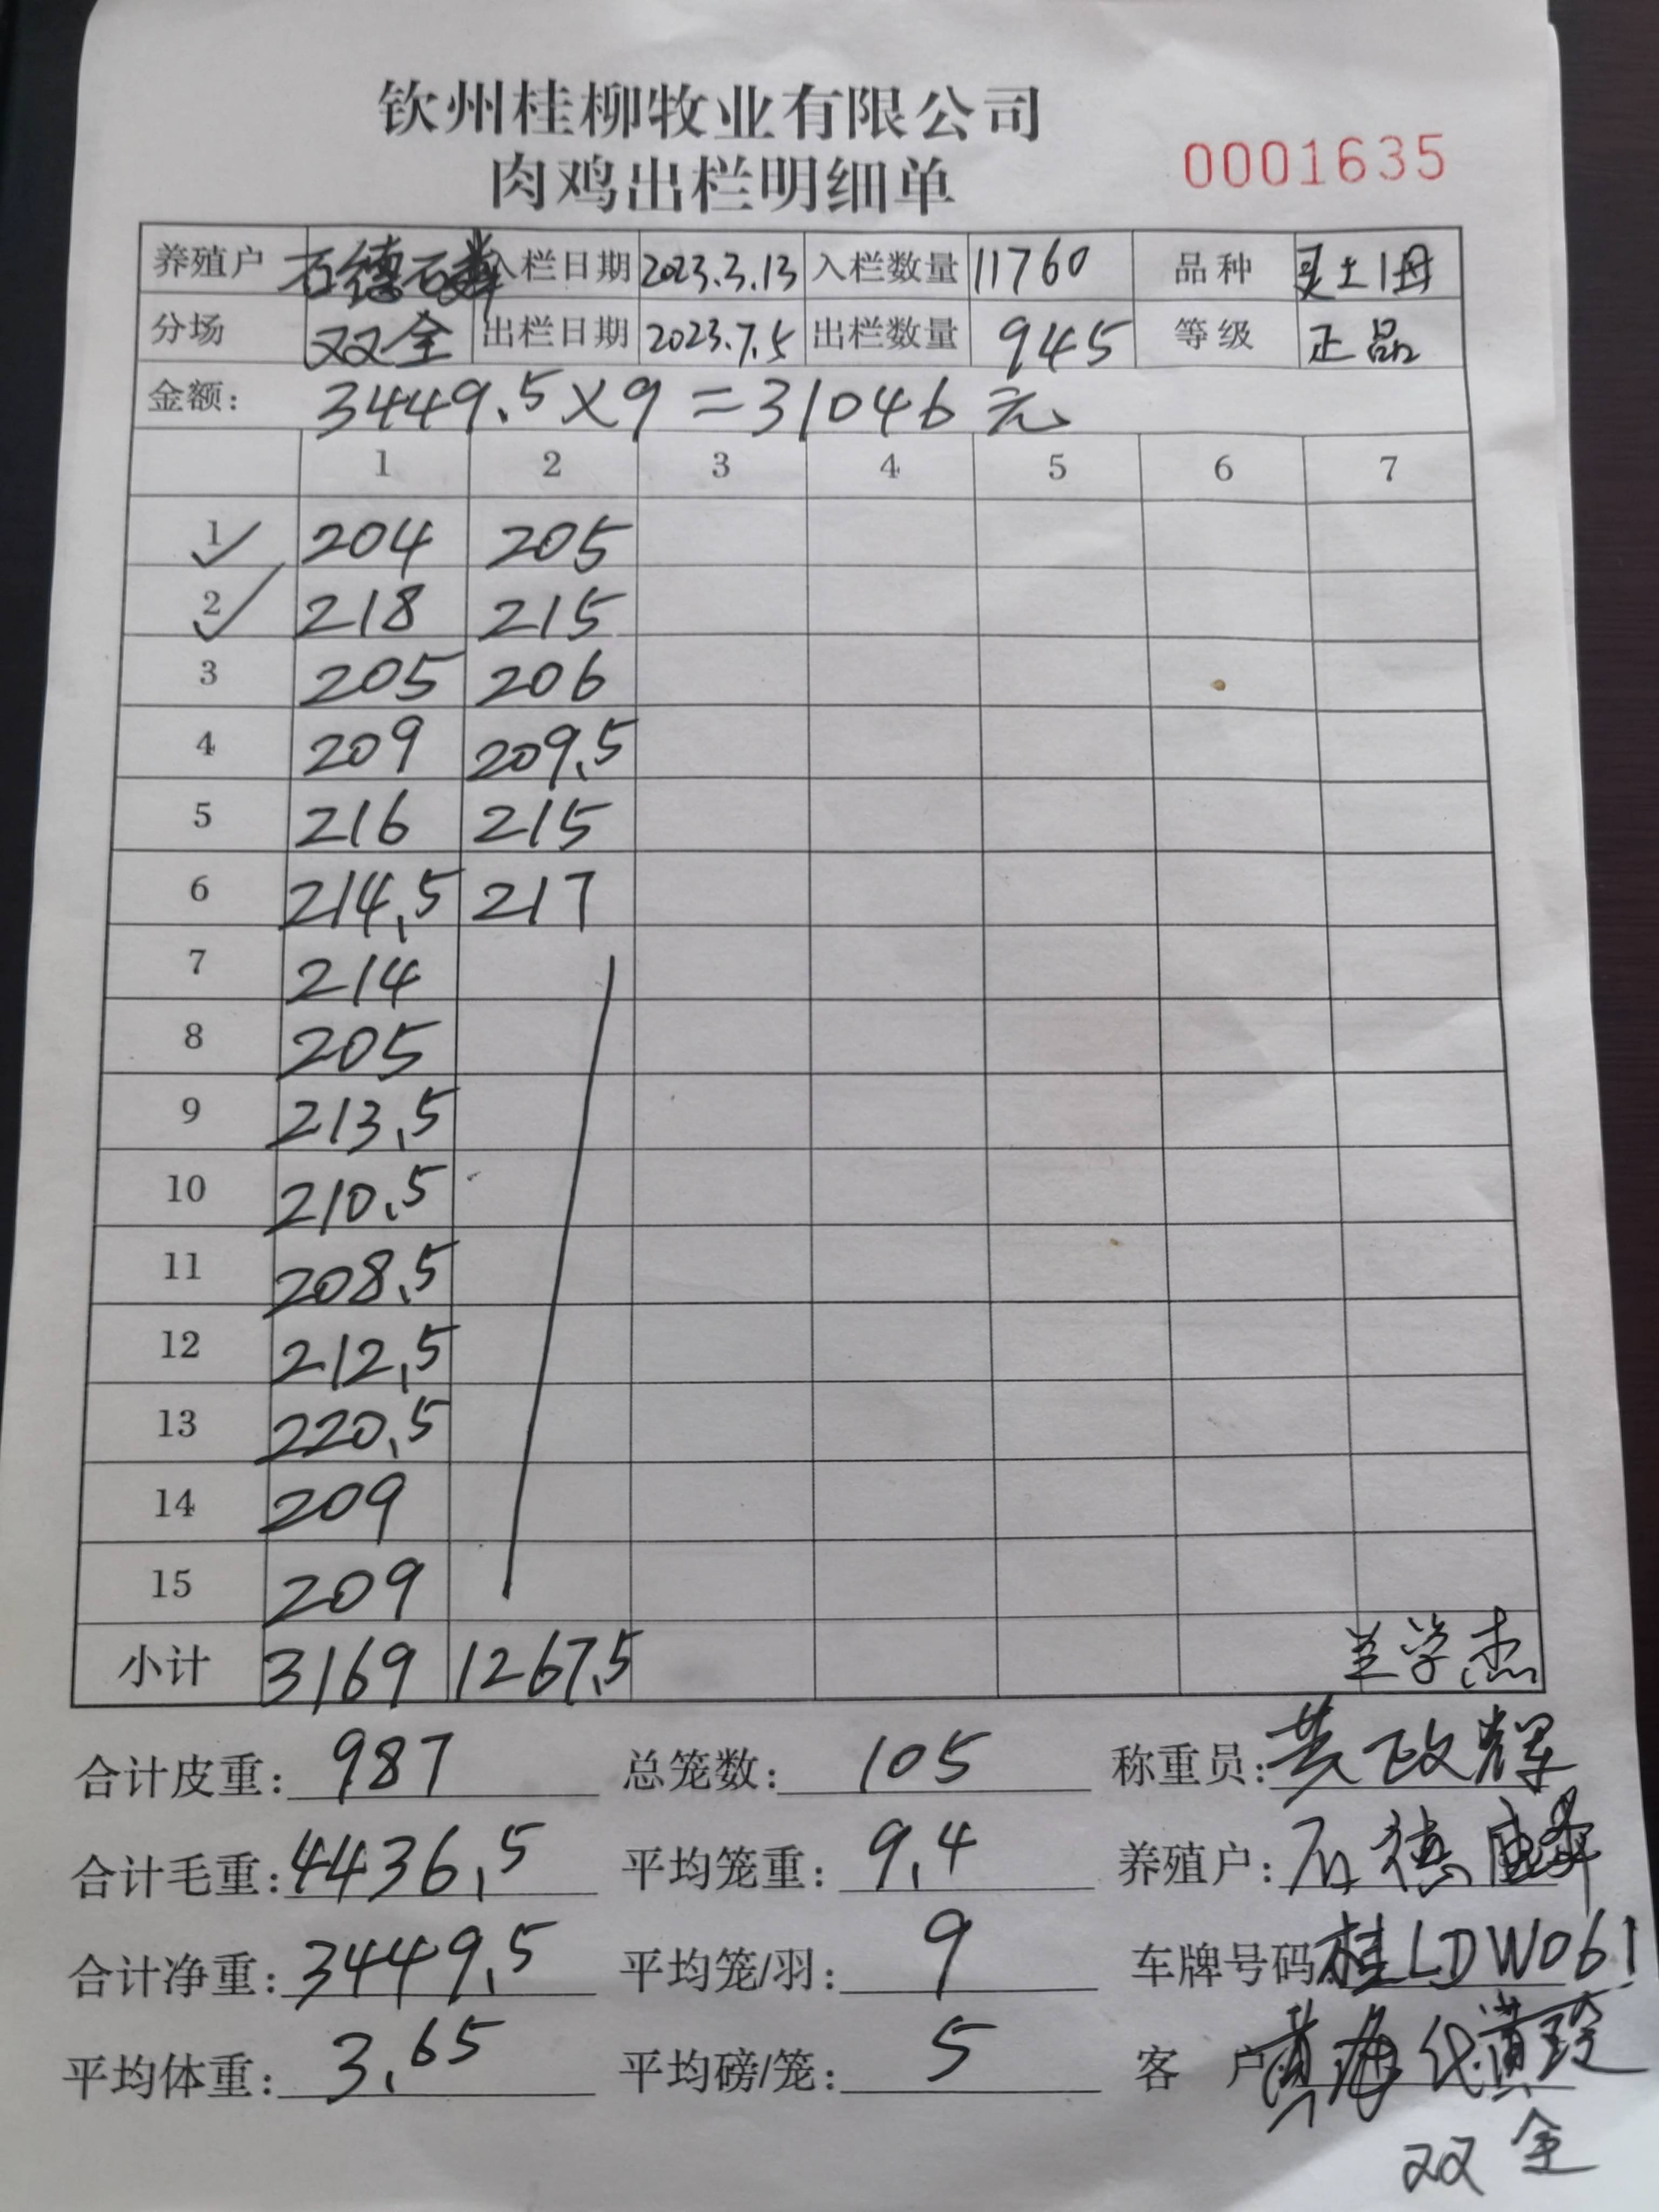 钦州桂柳牧业有限公司
肉鸡出栏明细单 0001635
养殖户 石德 入栏日期 2023.3.13 入栏数量 11760 品种 土1母
分场 双全 出栏日期 2023.7.5 出栏数量 945 等级 正品
金额: 3449.5×9=31046元
1 2 3 4 5 6 7
1 204 205
2 218 215
3 205 206
4 209 209.5
5 216 215
6 214.5 217
7 214
8 205
9 213.5
10 210.5
11 208.5
12 212.5
13 220.5
14 209
15 209
小计 3169 1267.5 兰学杰
合计皮重: 987 总笼数: 105 称重员: 黄政辉
合计毛重: 4436.5 平均笼重: 9.4 养殖户: 石德
合计净重: 3449.5 平均笼/羽: 9 车牌号码: 桂LDW061
平均体重: 3.65 平均磅/笼: 5 客户 代黄玲
双全